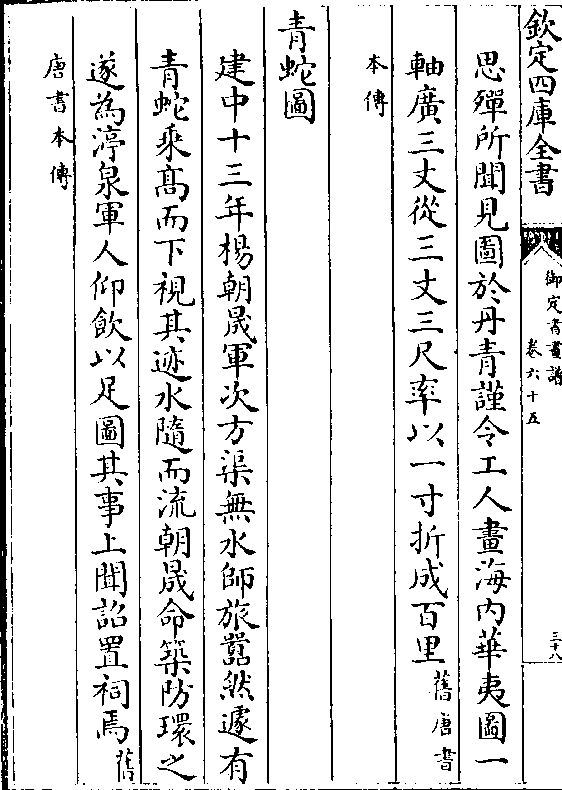 欽定四庫全書
御定書畫譜
卷六十五
三十八
思殫所聞見圖於丹青謹令工人畫海内華夷圖一
軸廣三丈從三丈三尺率以一寸折成百里舊唐書
本傳
青蛇圖
建中十三年楊朝晟軍次方渠無水師旅嚚然遽有
青蛇乘髙而下視其迹水隨而流朝晟命築防環之
遂為渟泉軍人仰飲以足圖其事上聞詔置祠焉舊
唐書本傳